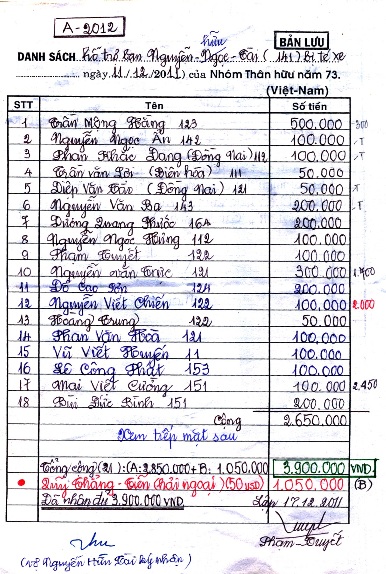 A-2012
BẢN LƯU
hữu
DANH SÁCH hỗ trợ bạn Nguyễn-Ngọc-Tài (141) bị tê xe
ngày 11/12/2011 của Nhóm Thân hữu năm 73.
(Việt-Nam)
STT Tên Số tiền
1 Trần Mộng Hằng 123 500.000 -500
2 Nguyễn Ngọc Ân 142 100.000 T
3 Phan Khắc Dang (Đồng Nai) 112 100.000 T
4 Trần Văn Lợi (Biên hòa) 111 50.000
5 Diệp Văn Báu (Đồng Nai) 121 50.000 T
6 Nguyễn Văn Ba 143 200.000 T
7 Dương Quang Phước 16A 200.000
8 Nguyễn Ngọc Hùng 112 100.000
9 Phạm Tuyết 122 100.000
10 Nguyễn Trức 121 300.000
11 Đỗ Cao 124 200.000
12 Nguyễn Viết Chiến 122 100.000 2.000
13 Hoàng Trung 122 50.000
14 Phan Văn Hoà 121 100.000
15 Vũ Viết Huyến 11 100.000
16 Lê Công Phát 153 100.000
17 Mai Viết Cường 151 100.000 2.450
18 Bùi Đức Bình 151 200.000
Cộng 2.650.000
Xem tiếp mặt sau
Tổng cộng (21): (A: 2.850.000 + B: 1.050.000) 3.900.000 VNĐ
Quý Thắng - Tiến (hải ngoại) (50 USD) 1.050.000 (B)
Đã nhận đủ 3.900.000 VNĐ Lập 17.12.2011
Phạm-Tuyết
(vợ Nguyễn Hữu Tài ký nhận)